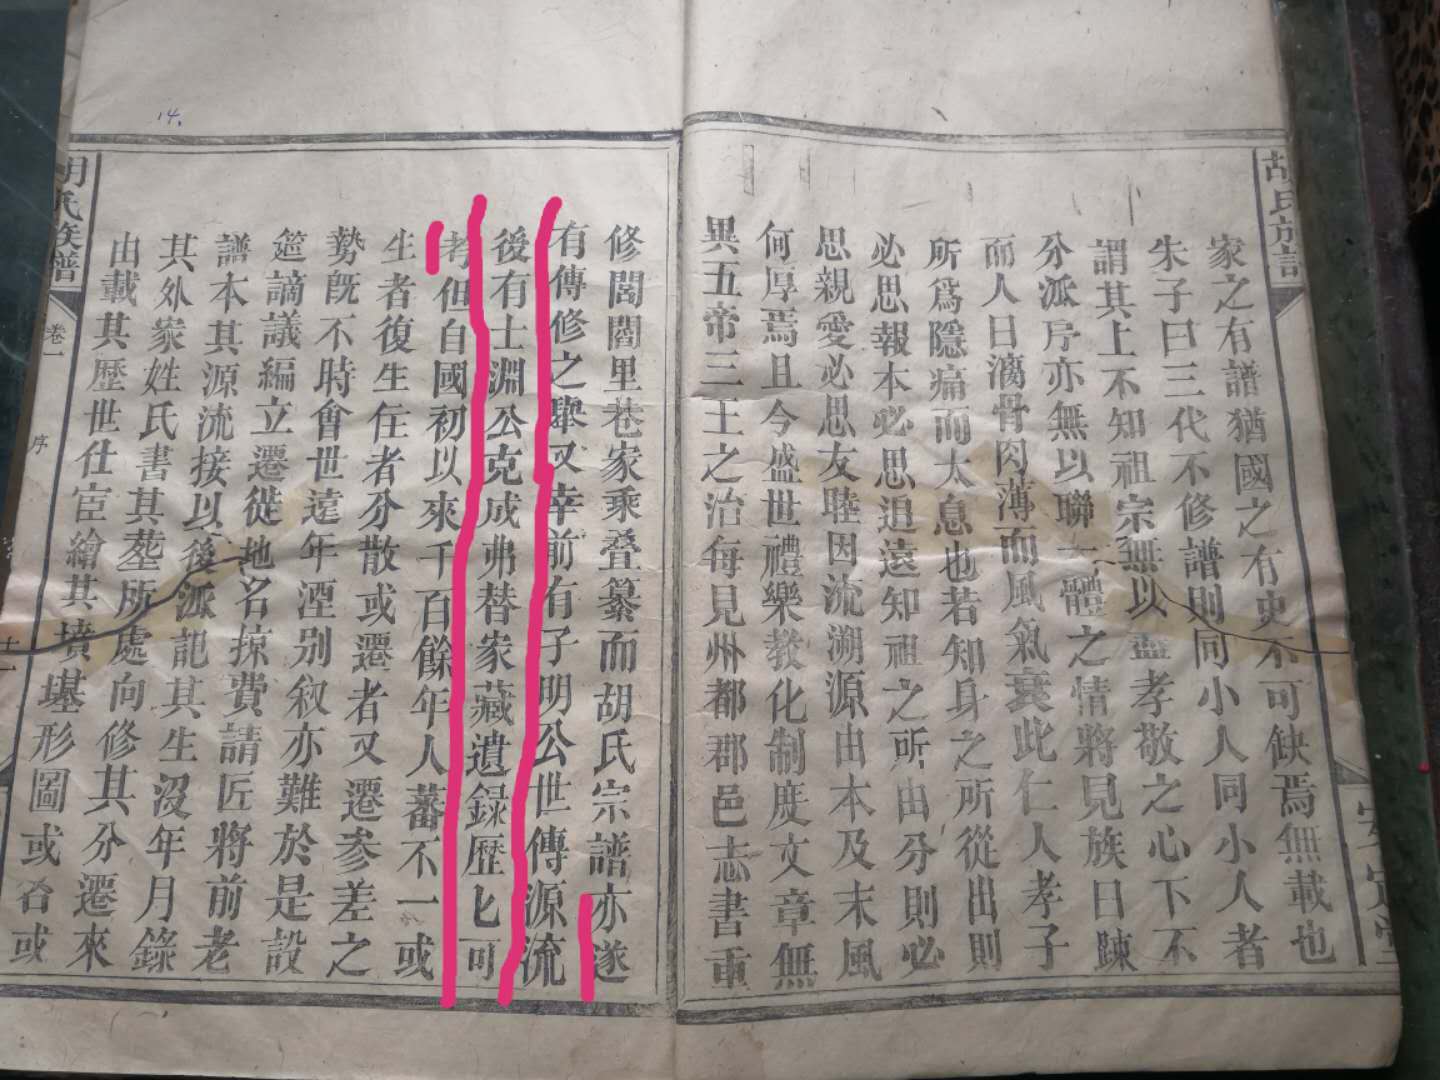 胡氏族譜
安定堂
家之有譜猶國之有史不可缺焉無載也
朱子曰三代不修譜則同小人同小人者
謂其上不知祖宗無以盡孝敬之心下不
分派序亦無以聯一體之情將見族日踈
而人日漓骨肉薄而風氣衰此仁人孝子
所爲隱痛而太息也若知身之所從出則
必思報本必思追遠知祖之所由分則必
思親愛必思友睦因流溯源由本及末風
何厚焉且今盛世禮樂教化制度文章無
異五帝三王之治每見州都郡邑志書重
修閭閻里巷家乘叠纂而胡氏宗譜亦遂
有傳修之舉又幸前有子明公世傳源流
後有士淵公克成弗替家藏遺録歷匕可
考但自國初以來千百餘年人蕃不一或
生者復生住者分散或遷者又遷參差之
勢旣不時會世遠年湮別叙亦難於是設
筵謫議編立遷徙地名掠費請匠將前老
譜本其源流接以後派記其生沒年月錄
其外家姓氏書其塟所處向修其分遷來
由載其歷世仕宦繪其墳墓形圖或咨或
胡氏族譜
卷一
序
十一
14.